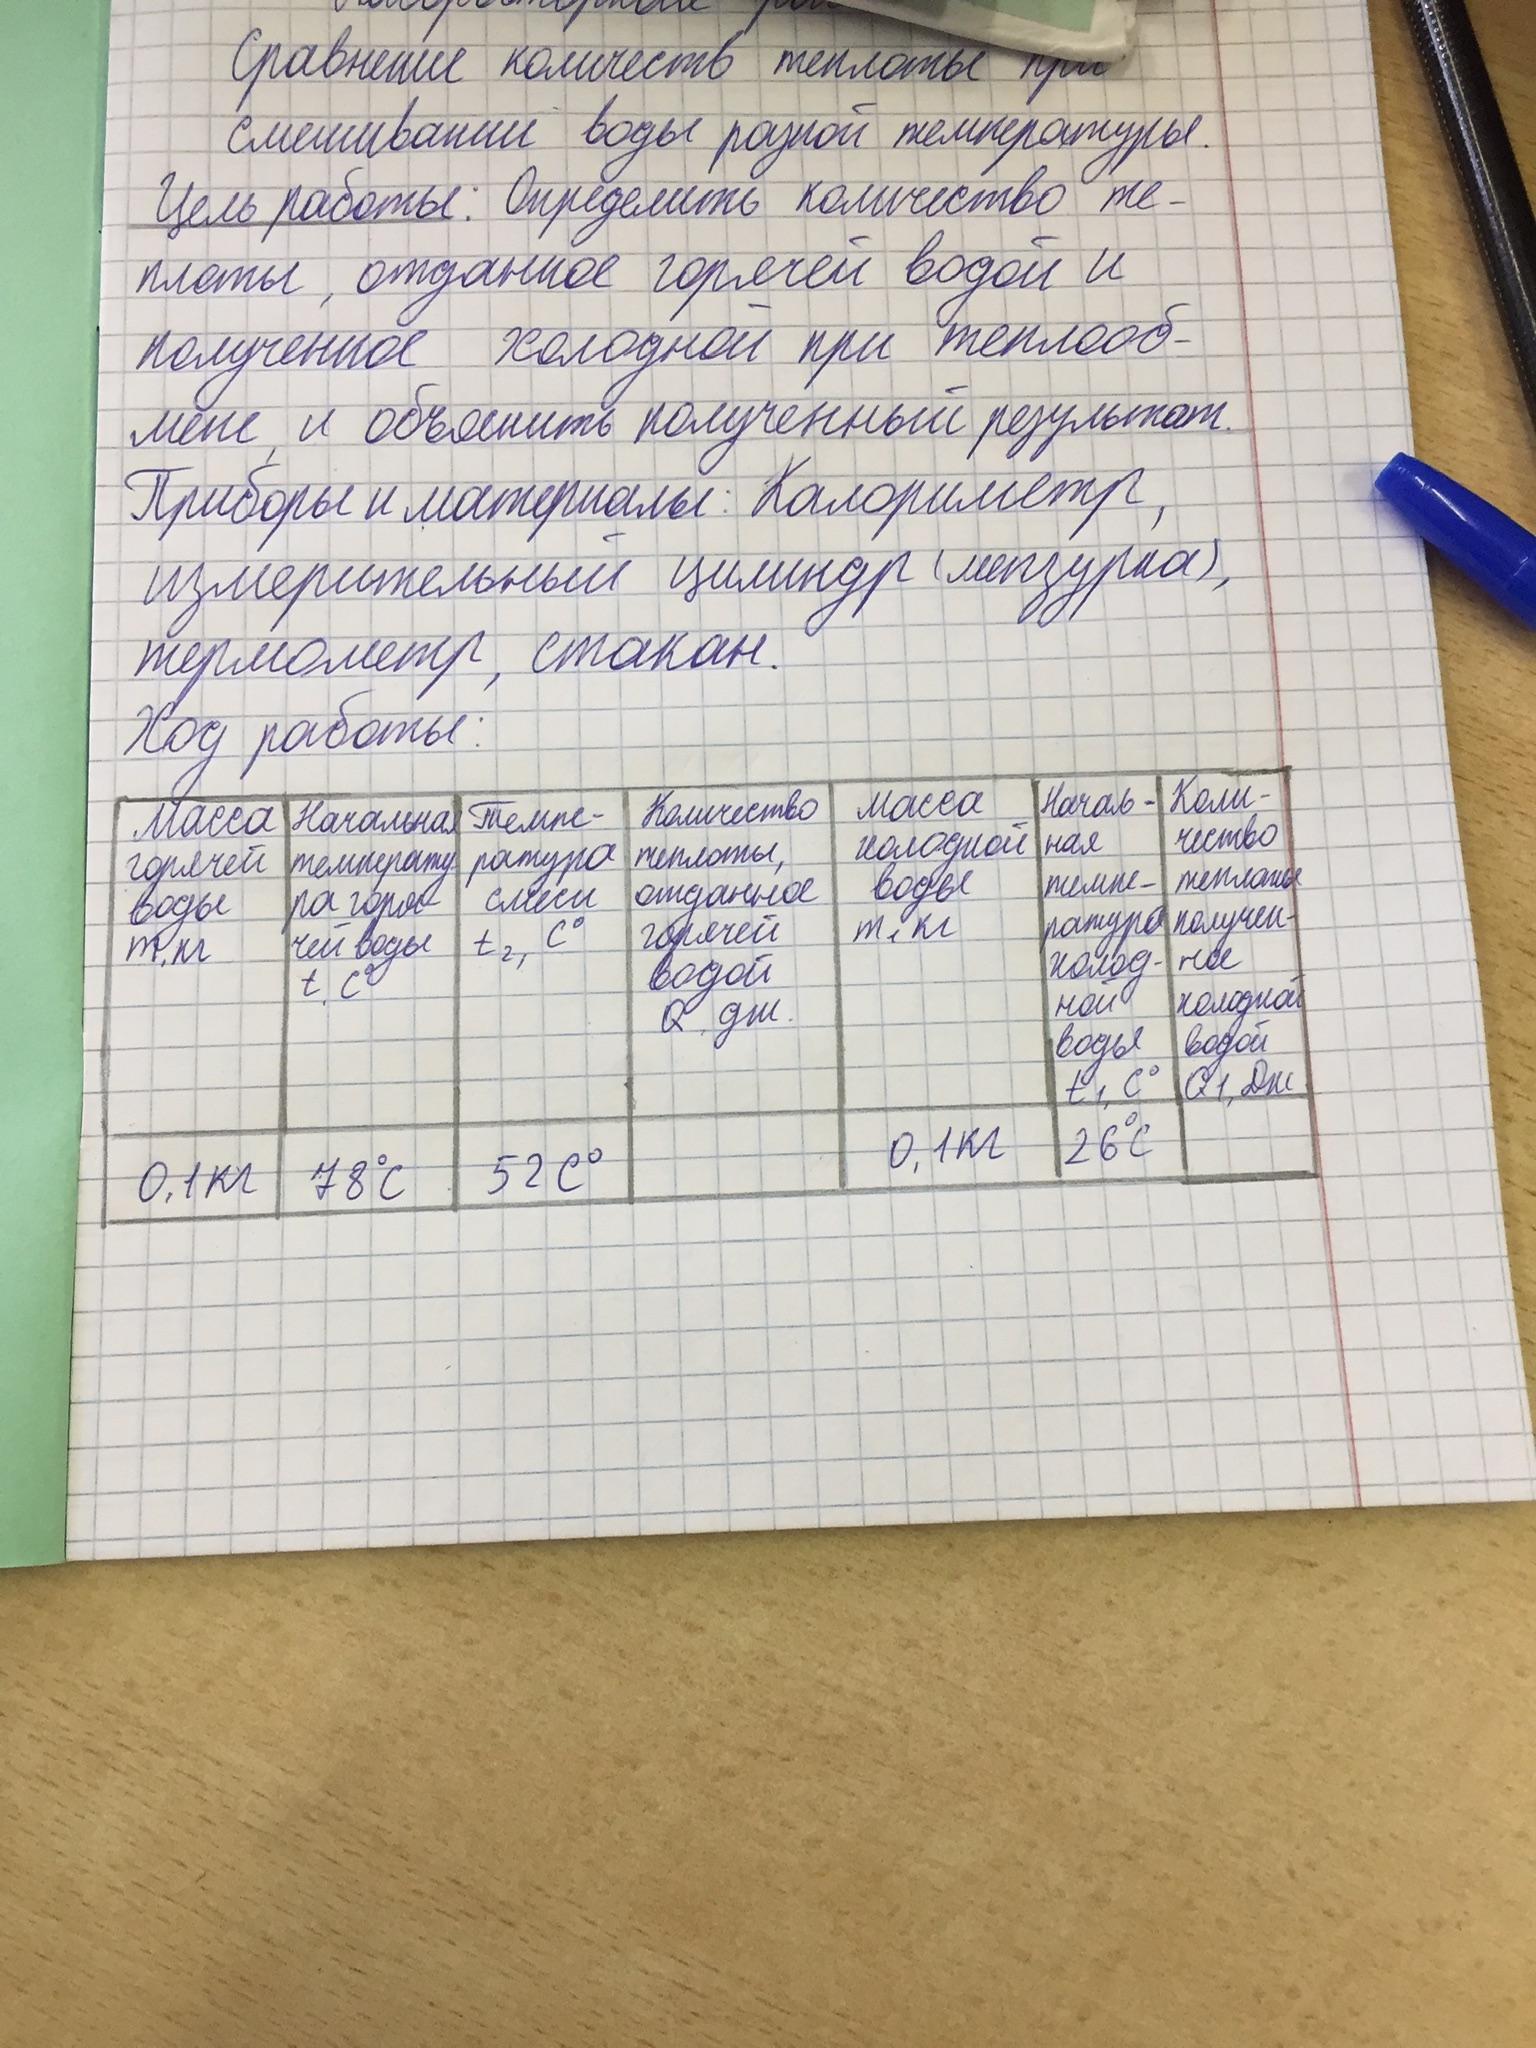 Сравнение количеств теплоты при
смешивании воды разной температуры.
Цель работы: Определить количество те-
плоты, отданное горячей водой и
полученное холодной при теплооб-
мене, и объяснить полученный результат.
Приборы и материалы: Калориметр,
измерительный цилиндр (мензурка),
термометр, стакан.
Ход работы:
Масса
горячей
воды
m, кг
Начальная
температу
ра горя-
чей воды
t, C°
Темпе-
ратура
смеси
t2, C°
Количество
теплоты,
отданное
горячей
водой
Q, дж.
Масса
холодной
воды
m1 кг
Началь-
ная
темпе-
ратура
холод-
ной
воды
t1, C°
Коли-
чество
теплоты
получен-
ное
холодной
водой
Q1, Дж
0,1кг
78°C
52C°
0,1кг
26°C